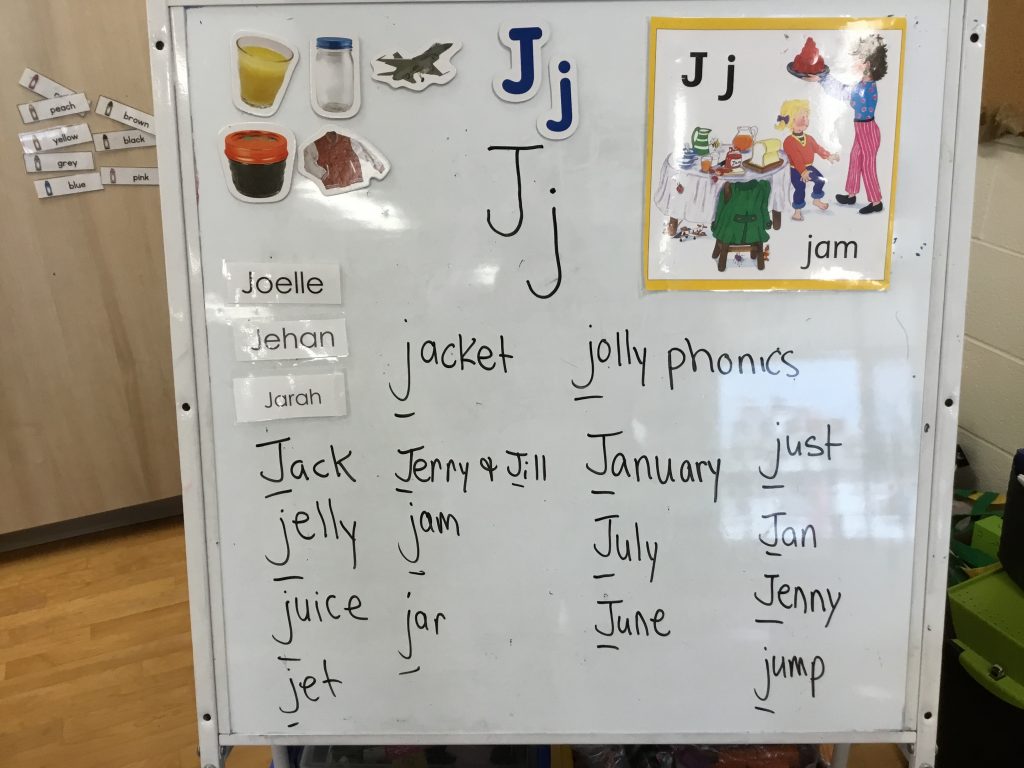 peach
brown
yellow
black
grey
blue
pink
J
j
J j
jam
J
j
Joelle
Jehan
Jarah
jacket
jolly phonics
Jack
Jerry & Jill
January
just
jelly
jam
July
Jan
juice
jar
June
Jenny
jet
jump